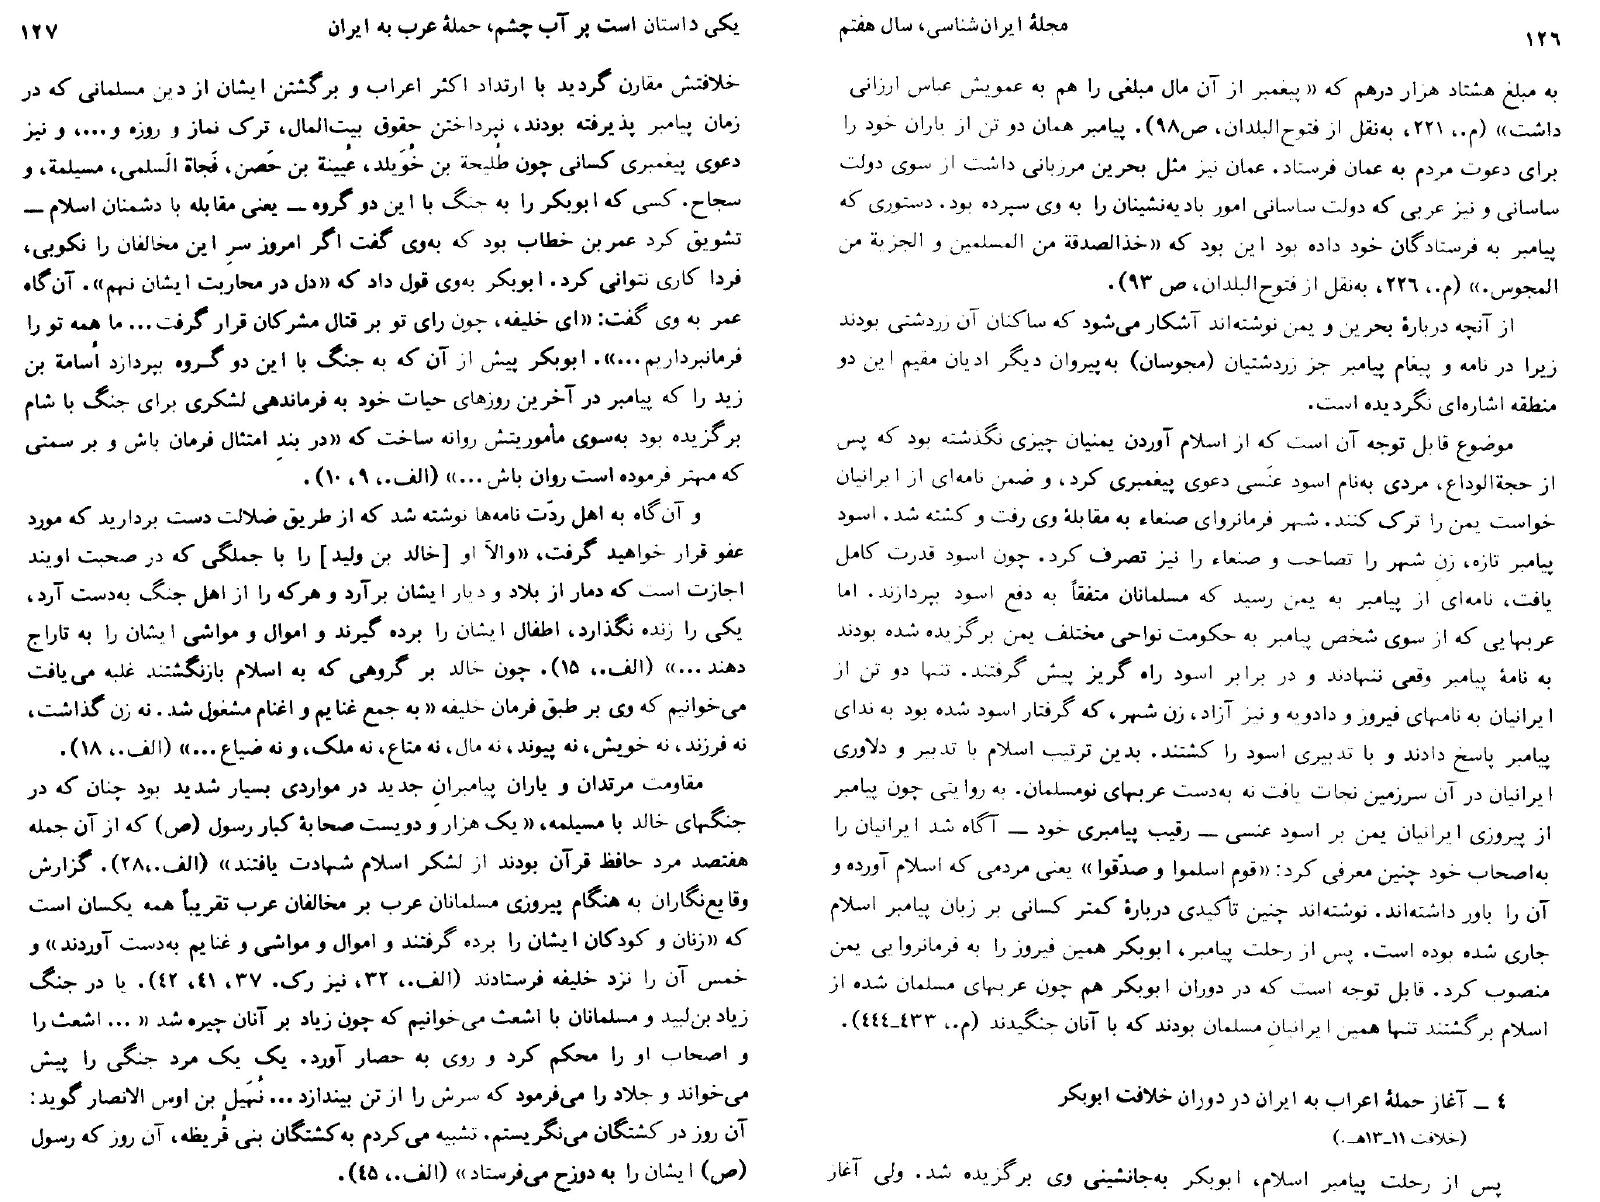 مجلهٔ ایران‌شناسی، سال هفتم
۱۲٦
به مبلغ هشتاد هزار درهم که «پیغمبر از آن مال مبلغی را هم به عمویش عباس ارزانی
داشت» (م.، ۲۲۱، به‌نقل از فتوح‌البلدان، ص۹۸). پیامبر همان دو تن از یاران خود را
برای دعوت مردم به عمان فرستاد. عمان نیز مثل بحرین مرزبانی داشت از سوی دولت
ساسانی و نیز عربی که دولت ساسانی امور بادیه‌نشینان را به وی سپرده بود. دستوری که
پیامبر به فرستادگان خود داده بود این بود که «خذالصدقة من المسلمین و الجزیة من
المجوس.» (م.، ۲۲٦، به‌نقل از فتوح‌البلدان، ص ۹۳).
از آنچه دربارهٔ بحرین و یمن نوشته‌اند آشکار می‌شود که ساکنان آن زردشتی بودند
زیرا در نامه و پیغام پیامبر جز زردشتیان (مجوسان) به‌پیروان دیگر ادیان مقیم این دو
منطقه اشاره‌ای نگردیده است.
موضوع قابل توجه آن است که از اسلام آوردن یمنیان چیزی نگذشته بود که پس
از حجةالوداع، مردی به‌نام اسود عَنَسی دعوی پیغمبری کرد، و ضمن نامه‌ای از ایرانیان
خواست یمن را ترک کنند. شهر فرمانروای صنعاء به مقابلهٔ وی رفت و کشته شد. اسود
پیامبر تازه، زنِ شهر را تصاحب و صنعاء را نیز تصرف کرد. چون اسود قدرت کامل
یافت، نامه‌ای از پیامبر به یمن رسید که مسلمانان متفقاً به دفع اسود بپردازند. اما
عربهایی که از سوی شخص پیامبر به حکومت نواحی مختلف یمن برگزیده شده بودند
به نامهٔ پیامبر وقعی ننهادند و در برابر اسود راه گریز پیش گرفتند. تنها دو تن از
ایرانیان به نامهای فیروز و دادویه و نیز آزاد، زن شهر، که گرفتار اسود شده بود به ندای
پیامبر پاسخ دادند و با تدبیری اسود را کشتند. بدین ترتیب اسلام با تدبیر و دلاوری
ایرانیان در آن سرزمین نجات یافت نه به‌دست عربهای نومسلمان. به روایتی چون پیامبر
از پیروزی ایرانیان یمن بر اسود عنسی ــ رقیب پیامبری خود ــ آگاه شد ایرانیان را
به‌اصحاب خود چنین معرفی کرد: «قوم اسلموا و صدّقوا» یعنی مردمی که اسلام آورده و
آن را باور داشته‌اند. نوشته‌اند چنین تأکیدی دربارهٔ کمتر کسانی بر زبان پیامبر اسلام
جاری شده بوده است. پس از رحلت پیامبر، ابوبکر همین فیروز را به فرمانروایی یمن
منصوب کرد. قابل توجه است که در دوران ابوبکر هم چون عربهای مسلمان شده از
اسلام برگشتند تنها همین ایرانیانِ مسلمان بودند که با آنان جنگیدند (م.، ٤۳۳ــ٤٤٤).
٤ ــ آغاز حملهٔ اعراب به ایران در دوران خلافت ابوبکر
(خلافت ۱۱ــ۱۳هـ.)
پس از رحلت پیامبر اسلام، ابوبکر به‌جانشینی وی برگزیده شد. ولی آغاز
یکی داستان است پر آب چشم، حملهٔ عرب به ایران
۱۲۷
خلافتش مقارن گردید با ارتداد اکثر اعراب و برگشتن ایشان از دین مسلمانی که در
زمان پیامبر پذیرفته بودند، نپرداختن حقوق بیت‌المال، ترک نماز و روزه و...، و نیز
دعوی پیغمبری کسانی چون طُلیحة بن خُوَیلد، عُیینة بن حَصن، فَجاة السلمی، مسیلمة، و
سجاح. کسی که ابوبکر را به جنگ با این دو گروه ــ یعنی مقابله با دشمنان اسلام ــ
تشویق کرد عمربن خطاب بود که به‌وی گفت اگر امروز سرِ این مخالفان را نکوبی،
فردا کاری نتوانی کرد. ابوبکر به‌وی قول داد که «دل در محاربت ایشان نهم». آن‌گاه
عمر به وی گفت: «ای خلیفه، چون رای تو بر قتال مشرکان قرار گرفت... ما همه تو را
فرمانبرداریم...». ابوبکر پیش از آن که به جنگ با این دو گروه بپردازد اُسامة بن
زید را که پیامبر در آخرین روزهای حیات خود به فرماندهی لشکری برای جنگ با شام
برگزیده بود به‌سوی مأموریتش روانه ساخت که «در بندِ امتثال فرمان باش و بر سمتی
که مهتر فرموده است روان باش...» (الف.، ۹، ۱۰).
و آن‌گاه به اهل ردّت نامه‌ها نوشته شد که از طریق ضلالت دست بردارید که مورد
عفو قرار خواهید گرفت، «والاّ او [خالد بن ولید] را با جملگی که در صحبت اویند
اجازت است که دمار از بلاد و دیار ایشان برآرد و هرکه را از اهل جنگ به‌دست آرد،
یکی را زنده نگذارد، اطفال ایشان را برده گیرند و اموال و مواشی ایشان را به تاراج
دهند...» (الف.، ۱۵). چون خالد بر گروهی که به اسلام بازنگشتند غلبه می‌یافت
می‌خوانیم که وی بر طبق فرمان خلیفه «به جمع غنایم و اغنام مشغول شد. نه زن گذاشت،
نه فرزند، نه خویش، نه پیوند، نه مال، نه متاع، نه ملک، و نه ضیاع...» (الف.، ۱۸).
مقاومت مرتدان و یاران پیامبرانِ جدید در مواردی بسیار شدید بود چنان که در
جنگهای خالد با مسیلمه، «یک هزار و دویست صحابهٔ کبار رسول (ص) که از آن جمله
هفتصد مرد حافظ قرآن بودند از لشکر اسلام شهادت یافتند» (الف.،۲۸). گزارش
وقایع‌نگاران به هنگام پیروزی مسلمانان عرب بر مخالفان عرب تقریباً همه یکسان است
که «زنان و کودکان ایشان را برده گرفتند و اموال و مواشی و غنایم به‌دست آوردند» و
خمس آن را نزد خلیفه فرستادند (الف.، ۳۲، نیز رک. ۳۷، ٤۱، ٤۲). یا در جنگ
زیاد بن‌لبید و مسلمانان با اشعث می‌خوانیم که چون زیاد بر آنان چیره شد «... اشعث را
و اصحاب او را محکم کرد و روی به حصار آورد. یک یک مرد جنگی را پیش
می‌خواند و جلاد را می‌فرمود که سرش را از تن بیندازد... نُهَیل بن اوس الانصار گوید:
آن روز در کشتگان می‌نگریستم. تشبیه می‌کردم به‌کشتگان بنی قُریظه، آن روز که رسول
(ص) ایشان را به دوزخ می‌فرستاد» (الف.، ٤۵).